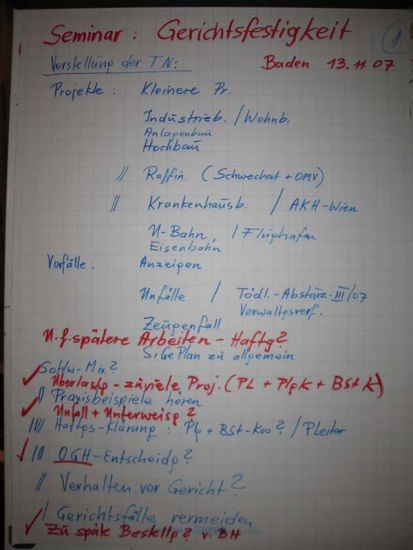 Seminar: Gerichtsfestigkeit 1
Vorstellung der TN: Baden 13.11.07
Projekte: Kleinere Pr.
Industrieb. / Wohnb.
Anlagenbau
Hochbau
// Raffin. (Schwechat + OMV)
// Krankenhausb. / AKH-Wien
U-Bahn, / Flughafen
Eisenbahn
Vorfälle: Anzeigen
Unfälle / Tödl.-Absturz-III/07
Verwaltgsverf.
Zeugenfall
U.f. spätere Arbeiten - Haftg?
SiGePlan zu allgemein
Softw-Mix?
Überlastg - zuviele Proj. (PL + PlgK + BstK)
// Praxisbeispiele hören
Unfall + Unterweisg?
//// Haftgs-Klärung: Plg + BSt-Koo? / PLeiter
// OGH-Entscheidg?
// Verhalten vor Gericht?
/ Gerichtsfälle vermeiden
Zu späte Bestellg? v. BH